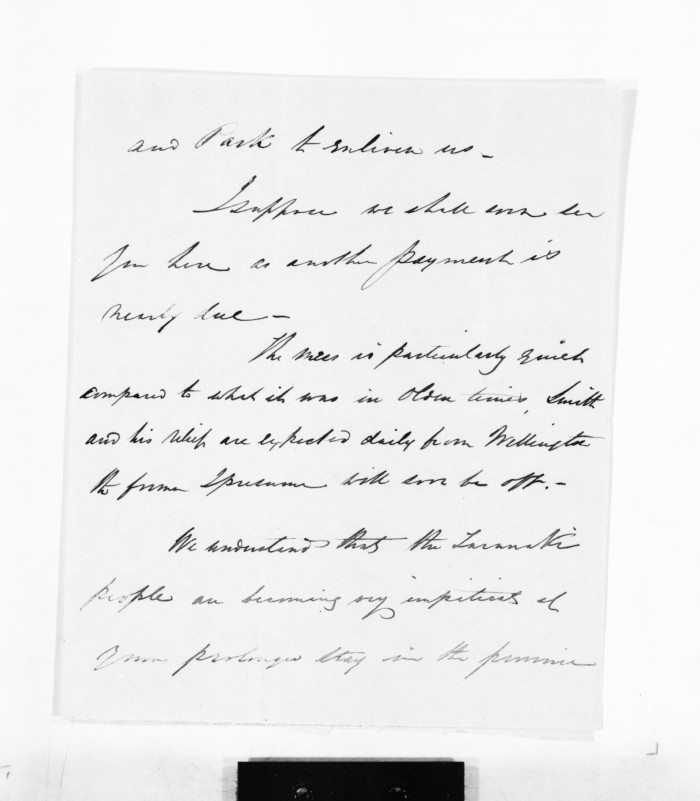 and Park to enliven us -
I suppose we shall soon see
you here as another payment is
nearly due -
The mess is particularly quiet
compared to what it was in olden times, Smith
and his relief are expected daily from Wellington
the former I presume will soon be off. -
We understand that the Taranaki
people are becoming very impatient at
your prolonged stay in the province